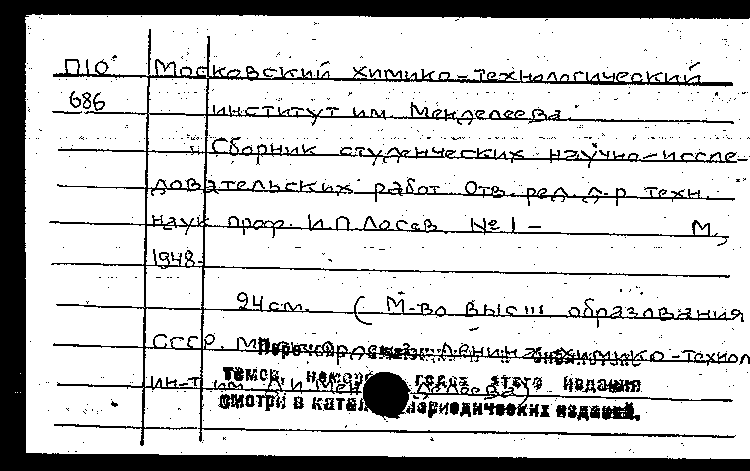 П10 Московский химико-технологический
686 институт им. Менделеева.
Сборник студенческих научно-иссле-
довательских работ Отв. ред. д-р техн.
наук проф. И.П. Лосев. № 1 – М.,
1948-
24 см. (М-во высш образования
СССР. Ленина химико-технол
ин-т им. Д.И. Мен делеева)
томов, годов этого издания
смотри в периодических изданий.